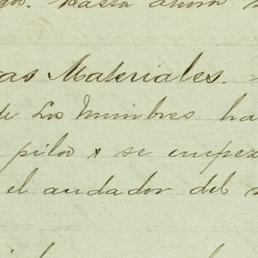 Hasta ahora
as Materiales.
de Los Mimbres ha
pilar y se empez
el andador del